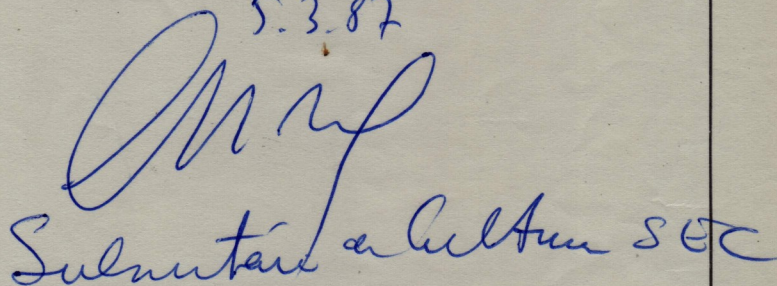 5.3.87
Subsecretário de Cultura SEC